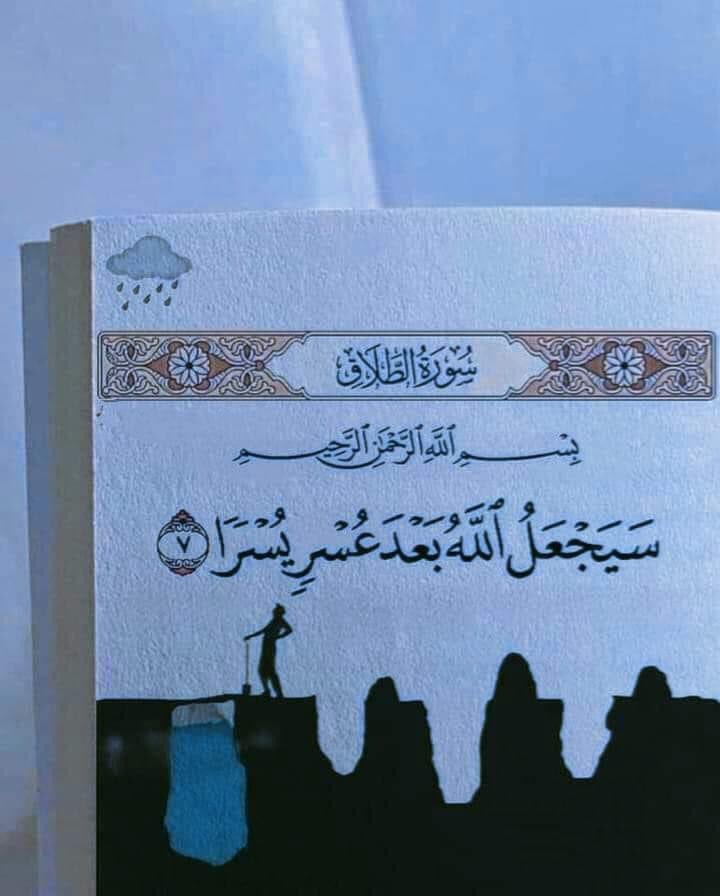 سُورَةُ الطَّلَاقِ
بِسْمِ ٱللَّهِ ٱلرَّحْمَٰنِ ٱلرَّحِيمِ
سَيَجْعَلُ ٱللَّهُ بَعْدَ عُسْرٍ يُسْرًا ٧